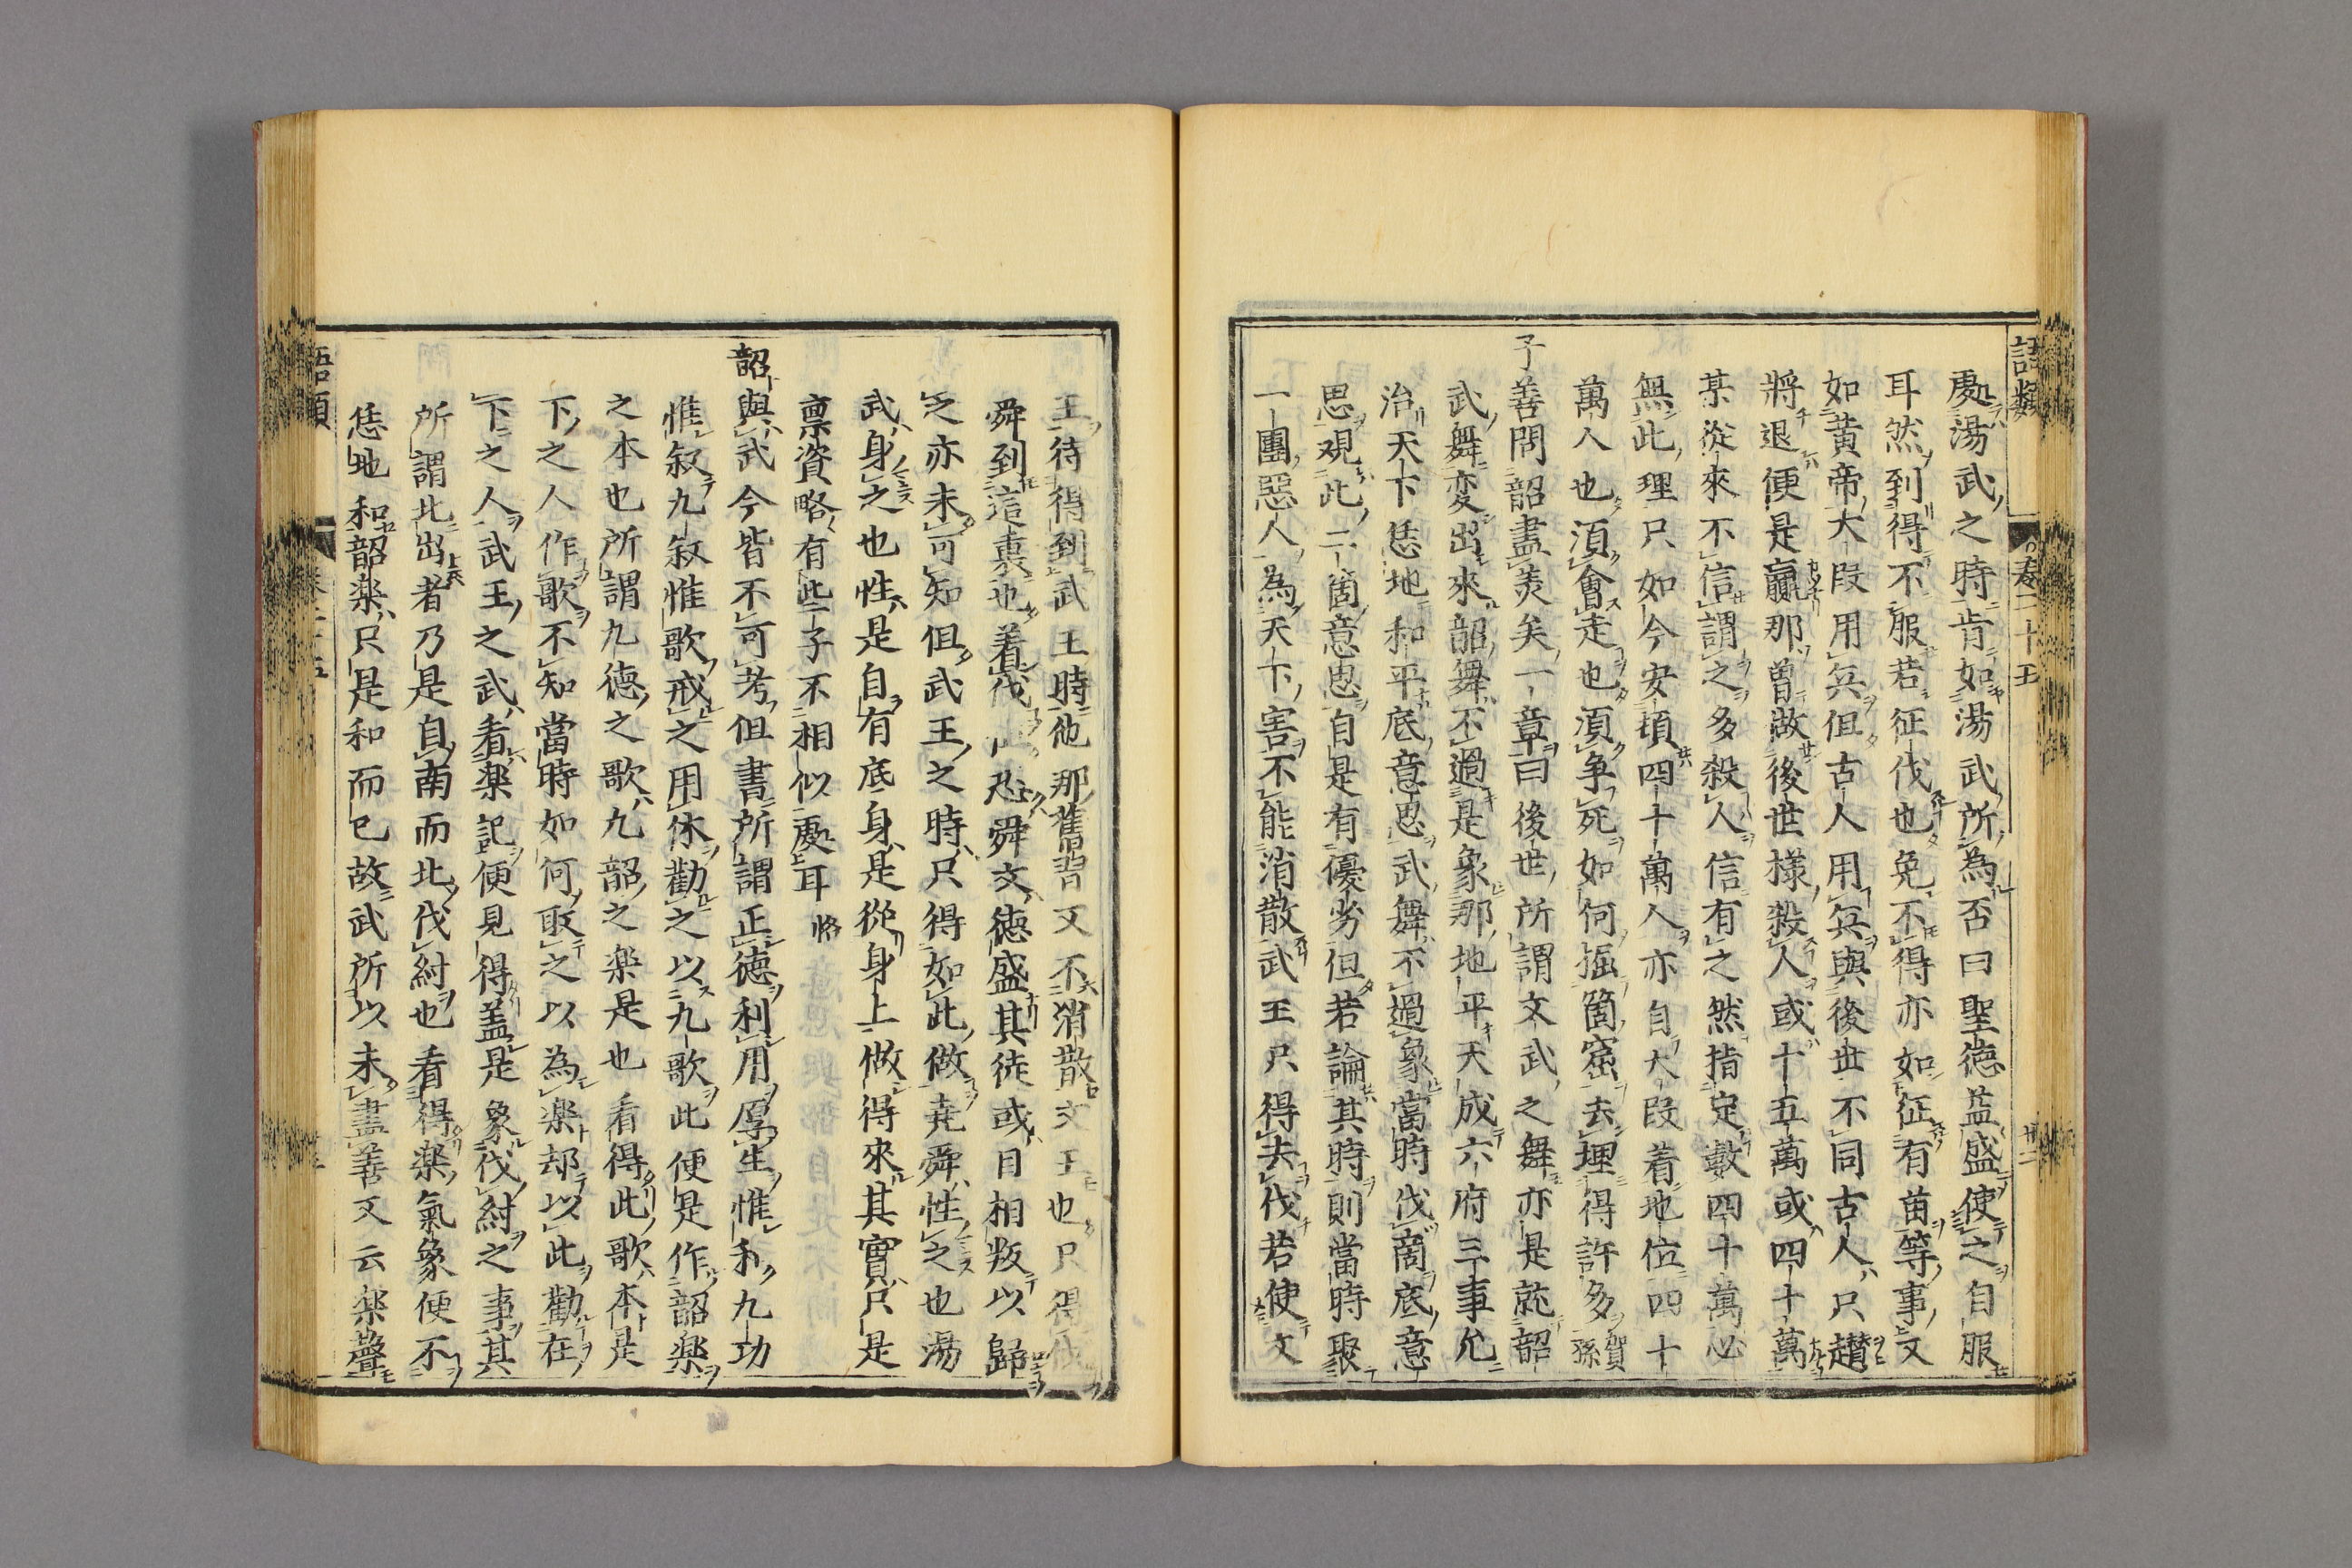 語類
卷二十五
廿二
處湯武之時肯如湯武所為否曰聖德益盛使之自服
耳然到得不服若征伐也免不得亦如征有苗等事又
如黃帝大段用兵但古人用兵與後世不同古人只趲
將退便是贏那曾做後世樣殺人或十五萬或四十萬
某從來不信謂之多殺人信有之然指定數四十萬必
無此理只如今安頓四十萬人亦自大段着地位四十
萬人也須會走也須爭死如何掘箇窟去埋得許多賀孫
子善問韶盡美矣一章曰後世所謂文武之舞亦是就韶
武舞変出來韶舞不過是象那地平天成六府三事允
治天下恁地和平底意思武舞不過象當時伐商底意
思觀此二箇意思自是有優劣但若論其時則當時聚
一團惡人為天下害不能消散武王只得去伐若使文
王待得到武王時他那舊習又不消散文王也只得伐
舜到這裏也着伐但恐舜文德盛其徒或自相叛以歸
之亦未可知但武王之時只得如此做堯舜性之也湯
武身之也性是自有底身是從身上做得來其實只是
稟資略有些子不相似處耳恪
韶與武今皆不可考但書所謂正德利用厚生惟和九功
惟叙九叙惟歌戒之用休勸之以九歌此便是作韶楽
之本也所謂九德之歌九韶之楽是也看得此歌本是
下之人作歌不知當時如何取之以為楽却以此勸在
下之人武王之武看楽記便見得盖是象伐紂之事其
所謂北出者乃是自南而北伐紂也看得楽氣象便不
恁地和韶楽只是和而已故武所以未盡善又云楽聲
語類